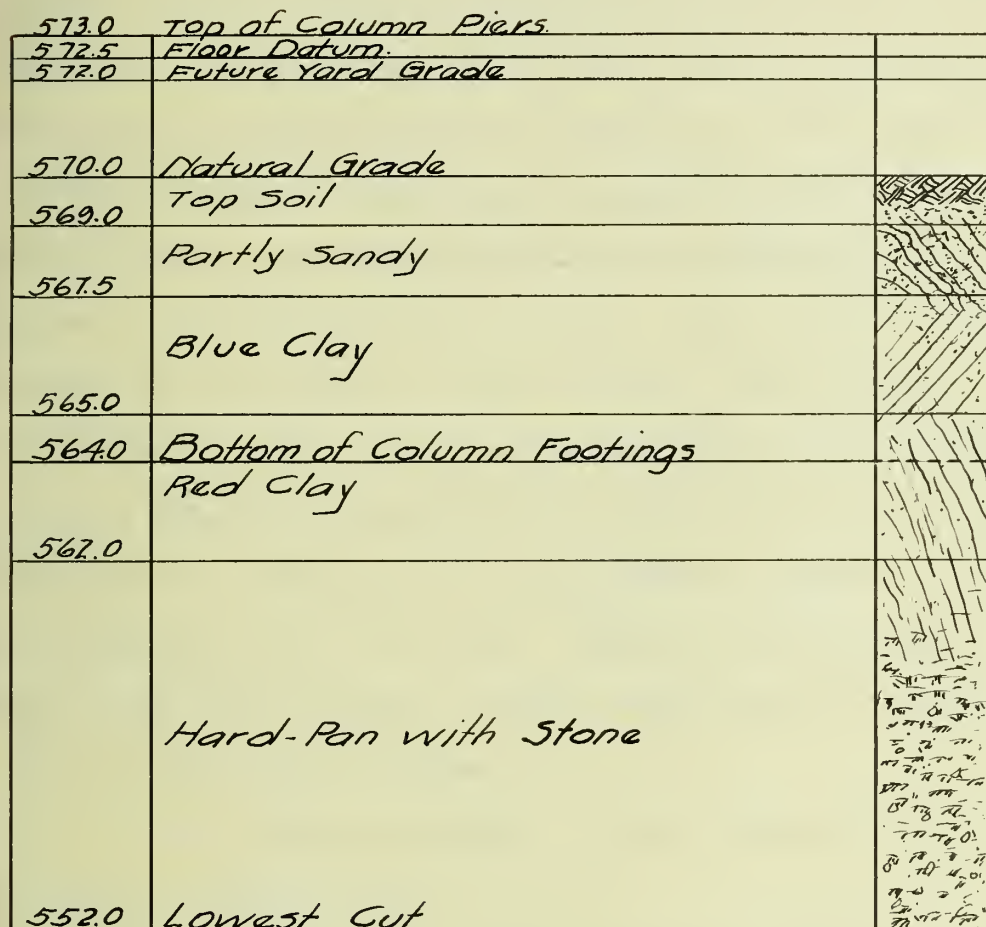 573.0 Top of Column Piers.
572.5 Floor Datum.
572.0 Future Yard Grade
570.0 Natural Grade
Top Soil
569.0
Partly Sandy
567.5
Blue Clay
565.0
564.0 Bottom of Column Footings
Red Clay
562.0
Hard-Pan with Stone
552.0 Lowest Cut